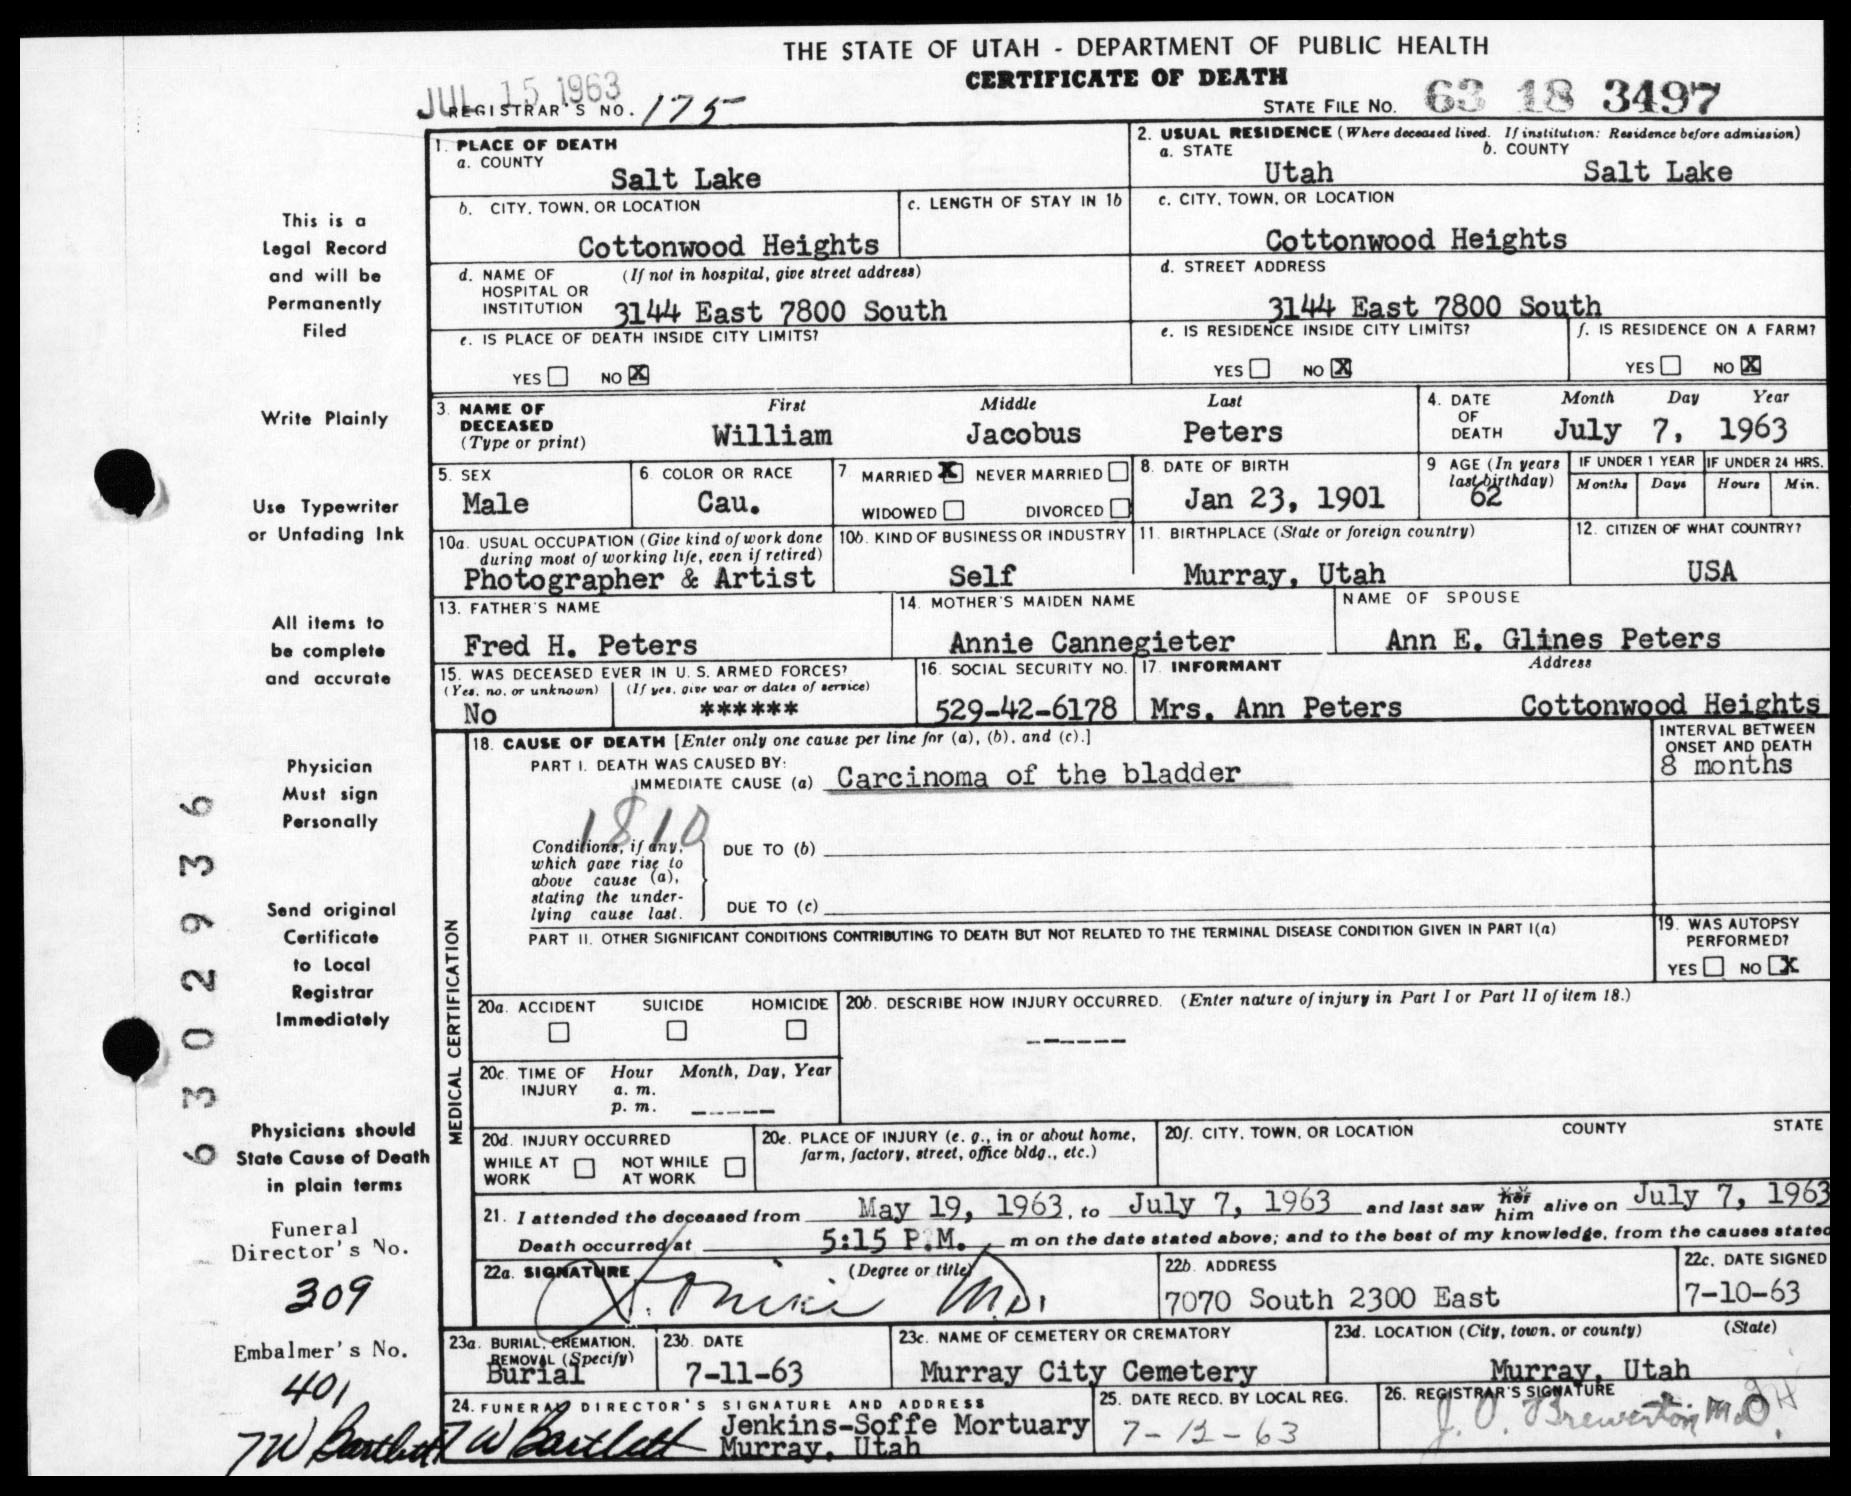 THE STATE OF UTAH - DEPARTMENT OF PUBLIC HEALTH
CERTIFICATE OF DEATH
JUL 15 1963
REGISTRAR'S NO. 175
STATE FILE NO. 63 18 3497
1. PLACE OF DEATH
a. COUNTY
Salt Lake
2. USUAL RESIDENCE (Where deceased lived. If institution: Residence before admission)
a. STATE b. COUNTY
Utah Salt Lake
b. CITY, TOWN, OR LOCATION
Cottonwood Heights
c. LENGTH OF STAY IN 1b
c. CITY, TOWN, OR LOCATION
Cottonwood Heights
d. NAME OF HOSPITAL OR INSTITUTION (If not in hospital, give street address)
3144 East 7800 South
d. STREET ADDRESS
3144 East 7800 South
e. IS PLACE OF DEATH INSIDE CITY LIMITS?
YES NO X
e. IS RESIDENCE INSIDE CITY LIMITS?
YES NO X
f. IS RESIDENCE ON A FARM?
YES NO X
3. NAME OF DECEASED (Type or print)
First Middle Last
William Jacobus Peters
4. DATE OF DEATH
Month Day Year
July 7, 1963
5. SEX
Male
6. COLOR OR RACE
Cau.
7. MARRIED X NEVER MARRIED
WIDOWED DIVORCED
8. DATE OF BIRTH
Jan 23, 1901
9 AGE (In years last birthday)
62
IF UNDER 1 YEAR
Months Days
IF UNDER 24 HRS.
Hours Min.
10a. USUAL OCCUPATION (Give kind of work done
during most of working life, even if retired)
Photographer & Artist
10b. KIND OF BUSINESS OR INDUSTRY
Self
11. BIRTHPLACE (State or foreign country)
Murray, Utah
12. CITIZEN OF WHAT COUNTRY?
USA
13. FATHER'S NAME
Fred H. Peters
14. MOTHER'S MAIDEN NAME
Annie Cannegieter
NAME OF SPOUSE
Ann E. Glines Peters
15. WAS DECEASED EVER IN U. S. ARMED FORCES?
(Yes, no, or unknown) (If yes, give war or dates of service)
No ******
16. SOCIAL SECURITY NO.
529-42-6178
17. INFORMANT Address
Mrs. Ann Peters Cottonwood Heights
MEDICAL CERTIFICATION
18. CAUSE OF DEATH [Enter only one cause per line for (a), (b), and (c).]
PART I. DEATH WAS CAUSED BY:
IMMEDIATE CAUSE (a) Carcinoma of the bladder
INTERVAL BETWEEN
ONSET AND DEATH
8 months
1810
Conditions, if any,
which gave rise to
above cause (a),
stating the under-
lying cause last.
DUE TO (b)
DUE TO (c)
PART II. OTHER SIGNIFICANT CONDITIONS CONTRIBUTING TO DEATH BUT NOT RELATED TO THE TERMINAL DISEASE CONDITION GIVEN IN PART I(a)
19. WAS AUTOPSY
PERFORMED?
YES NO X
20a. ACCIDENT SUICIDE HOMICIDE
20b. DESCRIBE HOW INJURY OCCURRED. (Enter nature of injury in Part I or Part II of item 18.)
------
20c. TIME OF INJURY
Hour Month, Day, Year
a. m.
p. m. ------
20d. INJURY OCCURRED
WHILE AT WORK NOT WHILE AT WORK
20e. PLACE OF INJURY (e. g., in or about home,
farm, factory, street, office bldg., etc.)
20f. CITY, TOWN, OR LOCATION COUNTY STATE
21. I attended the deceased from May 19, 1963, to July 7, 1963 and last saw her him alive on July 7, 1963
Death occurred at 5:15 P.M. m on the date stated above; and to the best of my knowledge, from the causes stated
22a. SIGNATURE (Degree or title)
M.D.
22b. ADDRESS
7070 South 2300 East
22c. DATE SIGNED
7-10-63
23a. BURIAL, CREMATION,
REMOVAL (Specify)
Burial
23b. DATE
7-11-63
23c. NAME OF CEMETERY OR CREMATORY
Murray City Cemetery
23d. LOCATION (City, town, or county) (State)
Murray, Utah
24. FUNERAL DIRECTOR'S SIGNATURE AND ADDRESS
TW Bartlett Jenkins-Soffe Mortuary
Murray, Utah
25. DATE RECD. BY LOCAL REG.
7-12-63
26. REGISTRAR'S SIGNATURE
J. O. Brewerton M.D.
This is a
Legal Record
and will be
Permanently
Filed
Write Plainly
Use Typewriter
or Unfading Ink
All items to
be complete
and accurate
Physician
Must sign
Personally
Send original
Certificate
to Local
Registrar
Immediately
Physicians should
State Cause of Death
in plain terms
Funeral
Director's No.
309
Embalmer's No.
401
TW Bartlett
6302936